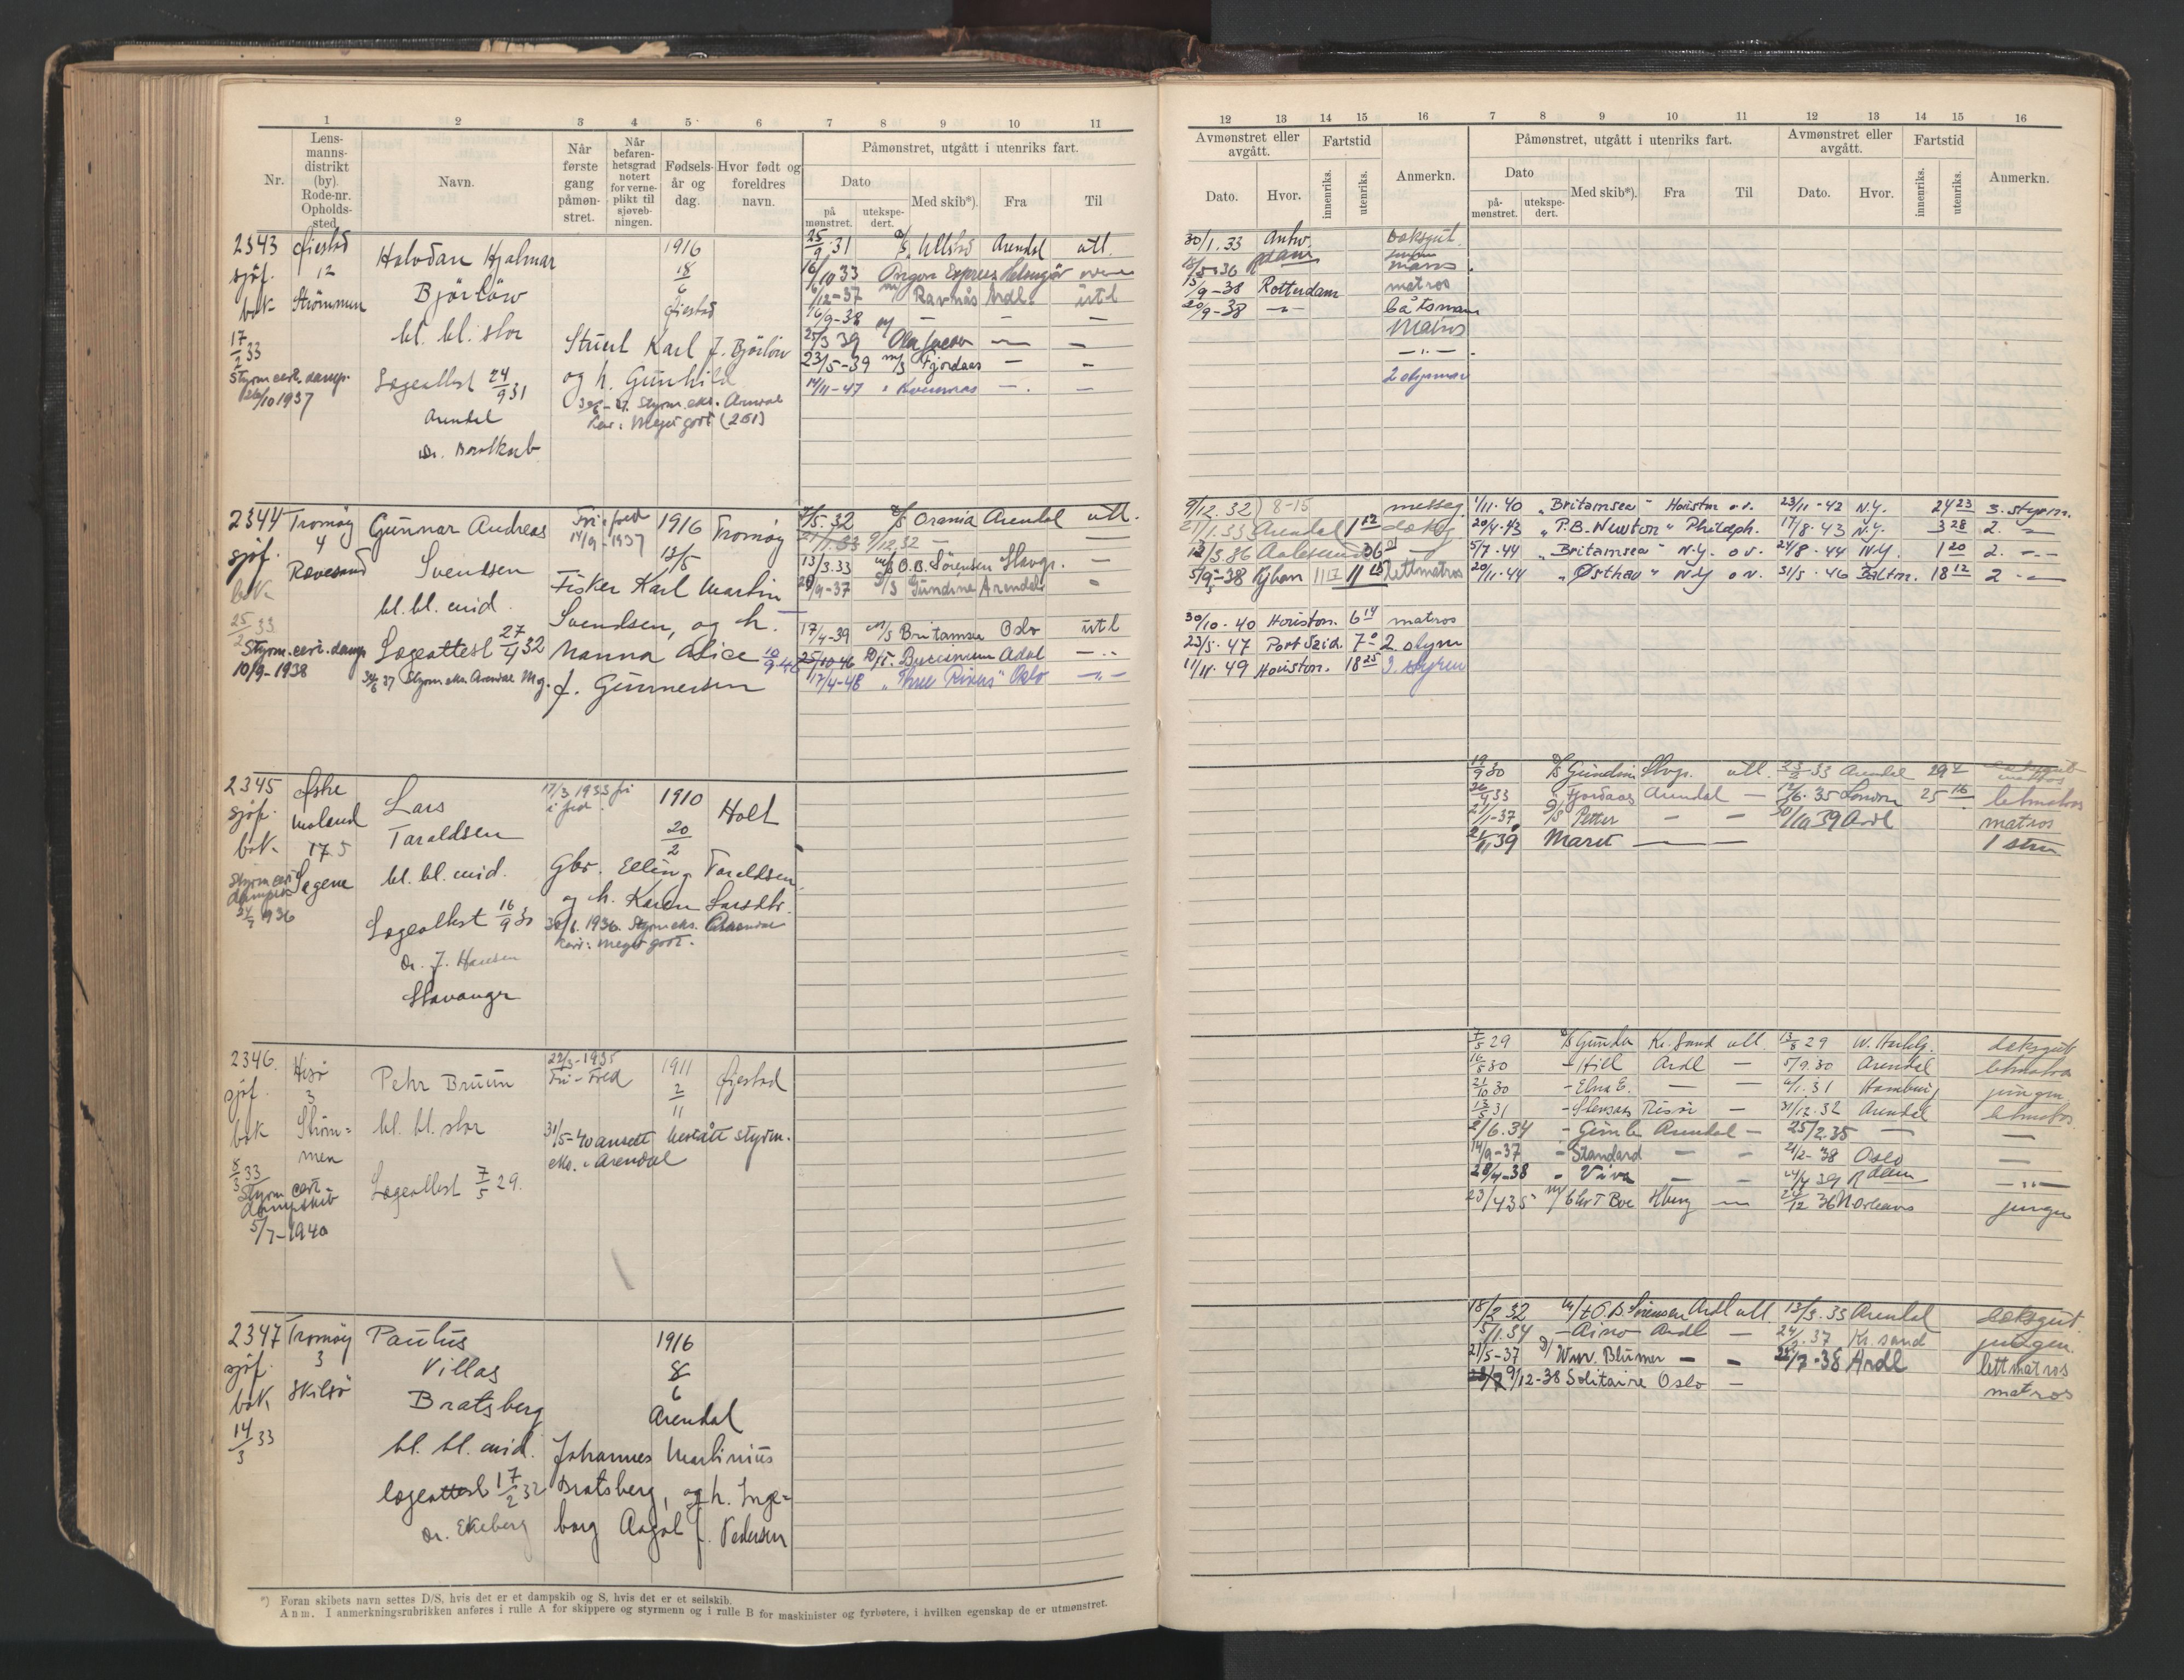 1 2 3 4 5 6 7 8 9 10 11
Nr.
Lens-
manns-
distrikt
(by).
Rode-nr.
Opholds-
sted.
Navn.
Når
første
gang
påmøn-
stret.
Når
befaren-
hetsgrad
notert
for verne-
plikt til
sjøveb-
ningen.
Fødsels-
år og
dag.
Hvor født og
foreldres
navn.
Påmønstret, utgått i utenriks fart.
Dato
på
mønstret.
utekspe-
dert.
Med skib*).
Fra
Til
2343 Øiestad Halvdan Hjalmar 1916 25/9.31 Ullstad Arendal utl.
sjøf. 12 Bjørløw 18/6 16/10 33 Angon Express Helsingör
bok Strømmen bl. bl. stor Øiestad 6/12-37 Ravnås Ardl. utl
17/2 33 Stuert Karl J. Bjørløw 16/9-38 — — —
Styrm.cert. damp. og h. Gunhild 25/3 39 — —
26/10 1937 Lægeattest 24/9 31 23/5-39 m/s Fjordaas — —
Arendal 30/6-37. Styrm.eks. Arendal 14/11-47 Kvernaas — —
Kar: Meget godt (261)
2344 Tromøy Gunnar Andreas Fri i fred 1916 Tromøy 7/5.32 d/s Orania Arendal utl.
sjøf. 4 Svendsen 14/9-1937 13/5 21/1.33 9/12.32 —
bok Rævesand bl. bl. mid. Fisker Karl Martin 13/3.33 m/s O.B. Sörensen Stavgr. —
25/2 33 Svendsen, og h. 20/9-37 d/s Gundine Arendal
Styrm.cert. damp Lægeattest 27/4 32 Nanna Alice 17/4-39 m/s Britamsea Oslo utl
10/9-1938 30/6 37 Styrm.eks. Arendal Mg. f. Gunnersen 25/10-46 Buccinum Adal —
17/4-48 "Three Rivers" Oslo —
2345 Østre Lars 17/3 1933 fri 1910 Holt
sjøf. Moland Taraldsen i fred. 20/2
bok 17.5 bl. bl. mid. Gbr. Elling Taraldsen
Styrm.cert Sagene og h. Karen Larsdtr.
dampsk. Lægeattest 16/9 30 30/6. 1936. Styrm.eks. Arendal
1936 Dr. J. Hansen Kar: meget godt.
Stavanger
2346. Hisø Pehr Bruun 22/3-1935 1911 Øiestad
sjøf. 3 bl. bl. stor Fri-Fred 2/11
bok Strøm= 31/5-40 ansett bestått styrm.
8/3 33 men Lægeattest 7/5 29. eks. i Arendal
Styrm cert-
dampskib
5/7-1940
2347 Tromøy Paulus 1916
sjøf. 3 Villas 8/6
bok Skilsø Bratsberg Arendal
14/3 33 bl. bl. mid. Johannes Martinius
lægeattest 17/2 32 Bratsberg, og h. Inge=
Dr. Ekeberg borg Aagot f. Pedersen
*) Foran skibets navn settes D/S, hvis det er et dampskib og S, hvis det er et seilskib.
Anm. I anmerkningsrubrikken anføres i rulle A for skippere og styrmenn og i rulle B for maskinister og fyrbøtere, i hvilken egenskap de er utmønstret.
12 13 14 15 16 7 8 9 10 11 12 13 14 15 16
Avmønstret eller
avgått.
Fartstid
Dato.
Hvor.
innenriks.
utenriks.
Anmerkn.
Påmønstret, utgått i utenriks fart.
Dato
på-
mønstret.
utekspe-
dert.
Med skib*).
Fra
Til
Avmønstret eller
avgått.
Fartstid
Dato.
Hvor.
innenriks.
utenriks.
Anmerkn.
30/1.33 Antw. dæksgut.
18/5 36
15/9-38 Rotterdam matros
20/9-38 —"— båtsmann
Matros
—"—
2 styrmann
9/12.32 8-15 messeg 1/11.40 "Britamsea" Houston o.v. 23/11-42 N.Y. 24 23 3. styrm.
21/1.33 Arendal 1 12 dækg 20/4.43 "P.B. Newton" Philadph. 17/8.43 N.Y. 3 28 2. —
13/3.36 Aalesund 36 — 5/7.44 "Britamsea" N.Y. o.v. 24/8.44 N.Y. 1 20 2. —
5/9-38 Kjhavn 11 17 11 15 lettmatros 20/11.44 "Østhav" N.Y o.v. 31/5.46 Baltm. 18 12 2. —
30/10.40 Houston. 6 14 matros
23/5.47 Port Said. 7 0 2 styrm
11/11.49 Houston. 18 25 3. styrm
19/9 30 d/s Gundine Stvgr. utl. 23/2 33 Arendal 29 2 matros
26/4 33 Fjordaas Arendal — 12/6.35 London 25 16 letmatros
21/1-37 d/s Petter — — 30/10 39 Ardl matros
2/11 39 Maret — — 1 stm
7/5 29 d/s Gunda Kr.sand utl. 13/8 29 W. Hartlp. dæksgut
16/5 30 - Hill Ardl — 5/9.30 Arendal letmatros
21/10 30 - Elna E. — — 6/1.31 Hamburg jungm
13/5 31 - Stensaas Risør — 31/12.32 Arendal letmatros
2/6.34 - Gimle Arendal — 25/2.35 — —
14/9-37 - Standard — — 21/2-38 Oslo —
28/4-38 - Viva — — 24/4 39 Rdam —"—
23/4 35 m/s Chr T Boe Hbrg — 24/12 36 N Orleans jungm
18/2 32 m/t O.B. Sørensen Ardl utl. 13/3.33 Arendal dæksgut
5/1.34 - Aino Ardl — 24/2.37 Kr.sand jungm
21/5-37 d/s Wm. Blumer — — 22/7-38 Ardl lettmatros
9/12-38 Solitaire Oslo — matros